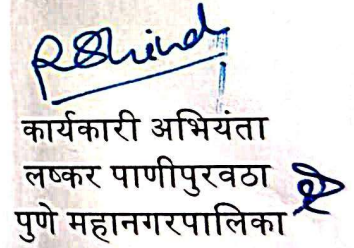 कार्यकारी अभियंता
लष्कर पाणीपुरवठा
पुणे महानगरपालिका